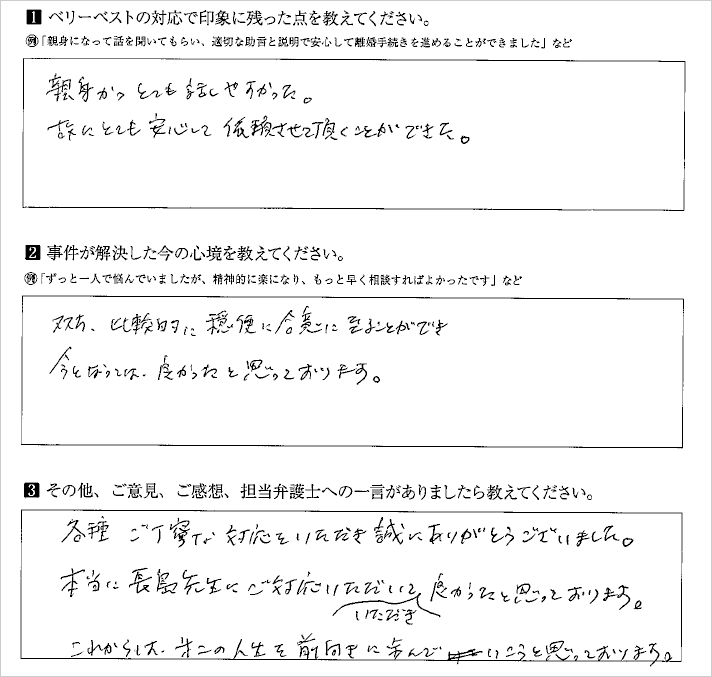 1 ベリーベストの対応で印象に残った点を教えてください。
例「親身になって話を聞いてもらい、適切な助言と説明で安心して離婚手続きを進めることができました」など
親身かつとても話しやすかった。
故にとても安心して依頼させて頂くことができた。
2 事件が解決した今の心境を教えてください。
例「ずっと一人で悩んでいましたが、精神的に楽になり、もっと早く相談すればよかったです」など
双方、比較的に穏便に合意に至ることができ
今となっては、良かったと思っております。
3 その他、ご意見、ご感想、担当弁護士への一言がありましたら教えてください。
各種 ご丁寧な対応をいただき誠にありがとうございました。
本当に長島先生にご対応いただいて良かったと思っております。
いただき
これからは、第二の人生を前向きに歩んでいこうと思っております。